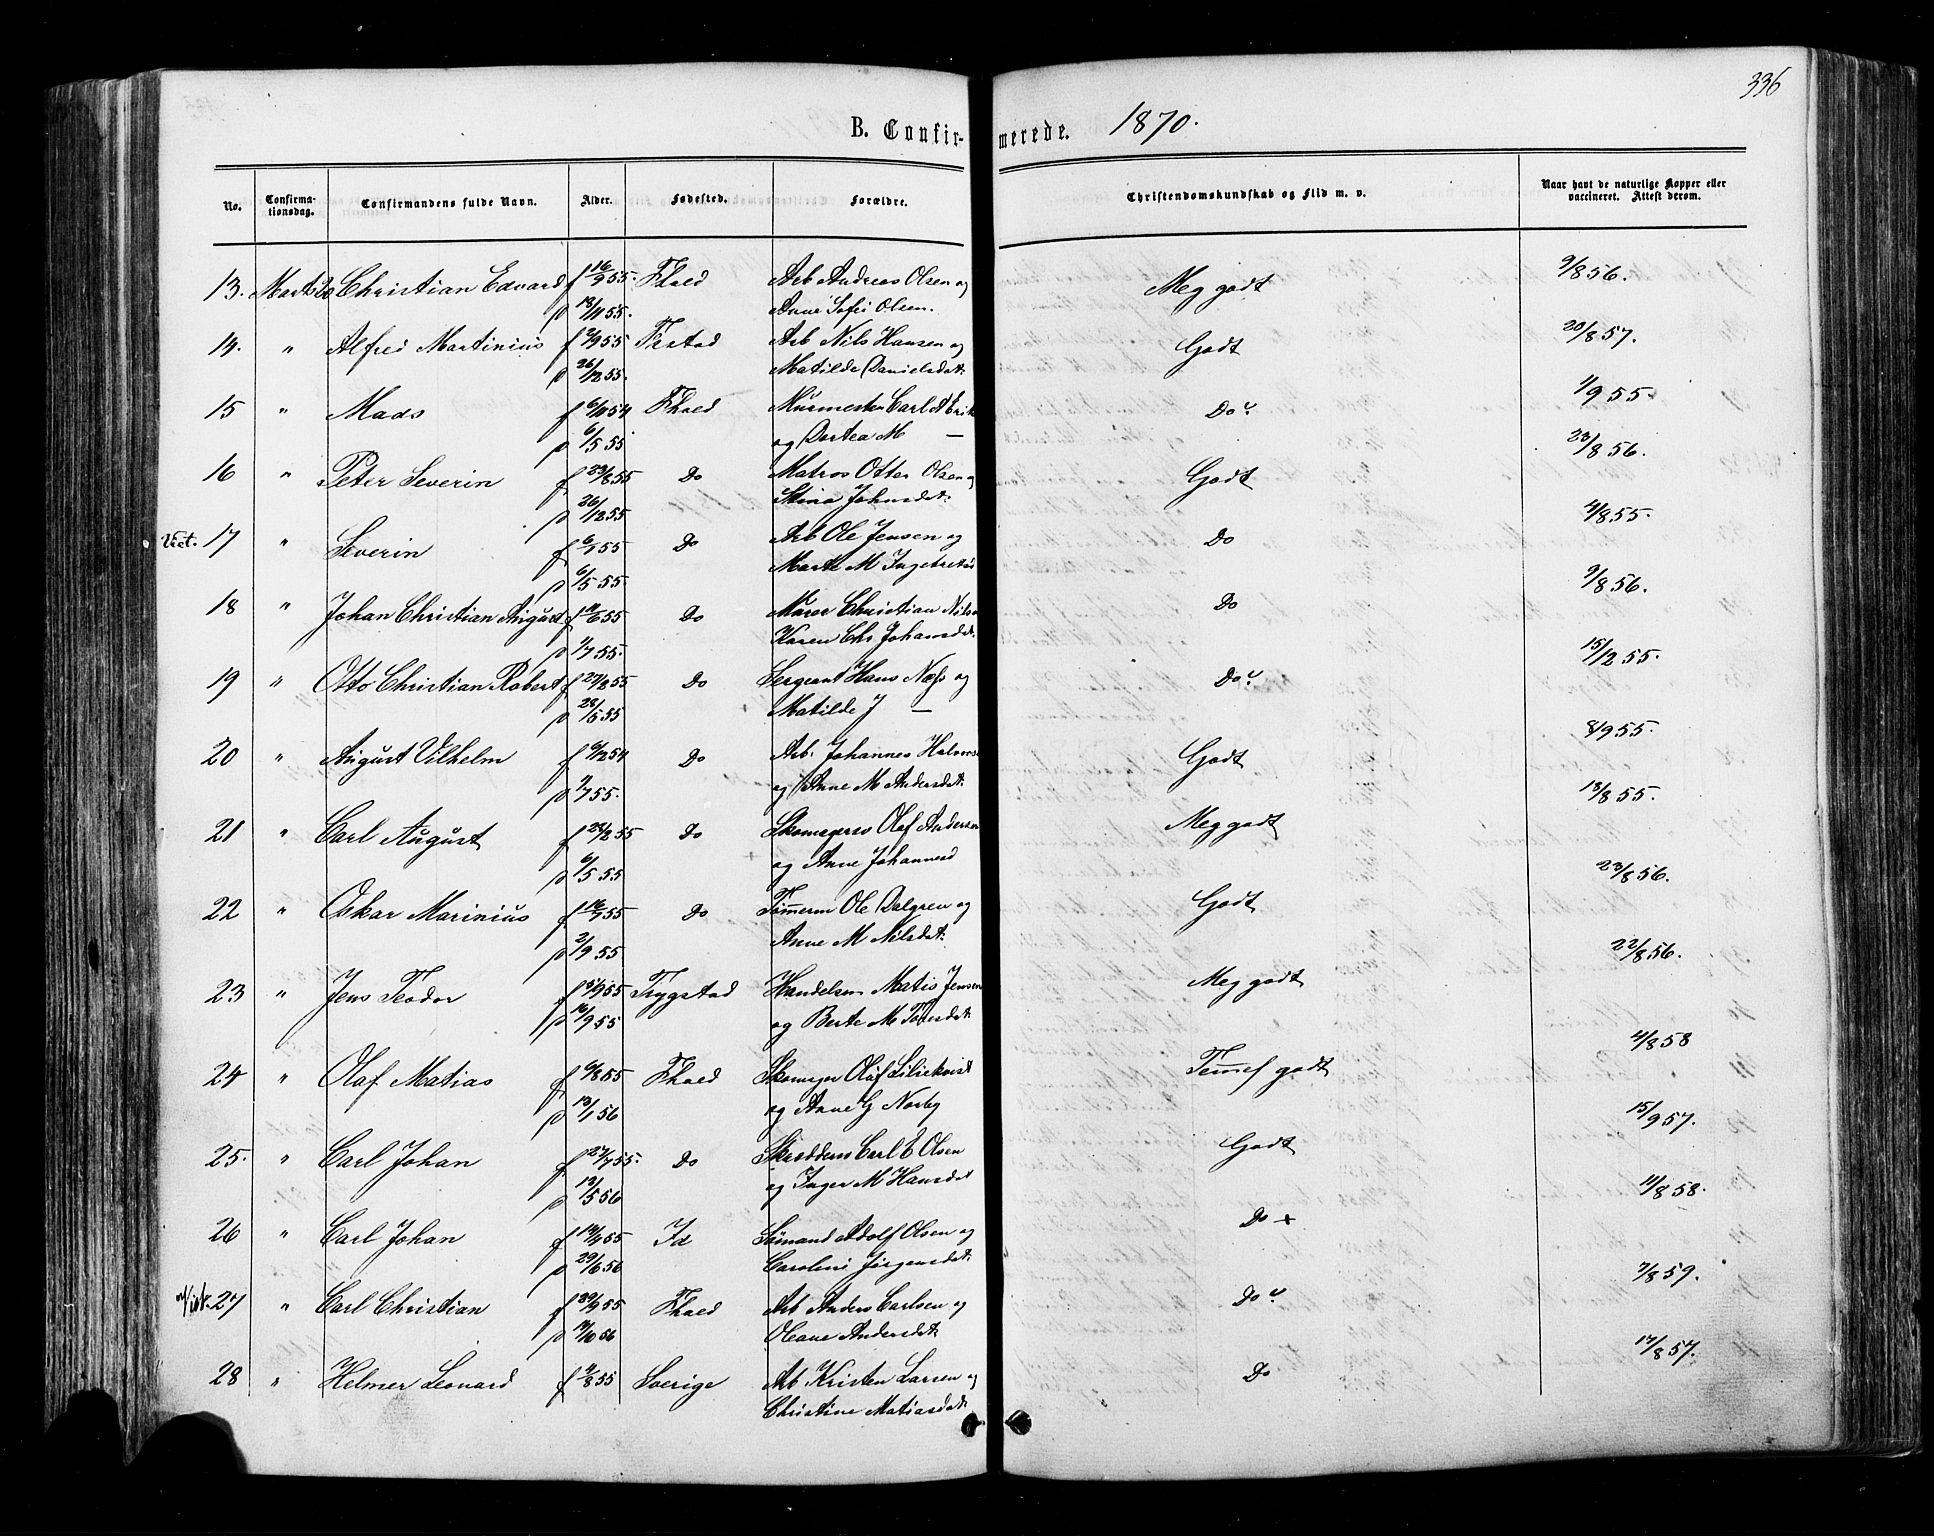 336
B. Confirmerede. 1870.
No. Confirmationsdag. Confirmandens fulde Navn. Alder. Fødested. Forældre. Christendomskundskab og Flid m. v. Naar havt de naturlige Kopper eller vaccineret. Attest derom.
13. Marts 20 Christian Edvard f 16/9 55. Fhald Arb Andreas Olsen og Meg godt 9/8 56.
d 18/11 55. Anne Sofie Olsen.
14. " Alfred Martinius f 2/9 55 Arb Nils Hansen og Godt 20/8 57.
d 26/12 55. Matilde Danielsdat:
15 " Mads f 6/11 54 Fhald Murmester Carl A Erik Do 1/9 55.
d 6/5 55 og Dortea M —
16 " Peter Severin f 29/8 55 Do Matros Otter Olsen og Godt 23/8 56.
d 26/12 55 Stina Johnsdat:
17 " Severin f 6/1 55 Do Arb Ole Jensen og Do 4/8 55.
d 6/5 55. Marte M Ingebretsd
18 " Johan Christian August f 11/6 55 Do Murer Christian Nils Do 9/8 56.
d 1/7 55. Karen Chr Johansdat.
19 " Otto Christian Robert f 27/2 55 Do Sergeant Hans Næss og Do 15/12 55.
d 28/5 55 Matilde J —
20 " August Vilhelm f 9/12 54 Do Arb. Johannes Halvors Godt 8/9 55.
d 1/7 55. og Anne M Andersdat:
21 " Carl August f 28/2 55 Do Skomagers Olaf Andersen Meg godt 18/8 55.
d 6/5 55 og Anne Johannesd
22 " Oskar Marinius f 16/7 55 Do Tømmerm Ole Dalgren og Godt 23/8 56.
d 2/9 55 Anne M Nilsdat:
23 " Jens Teodor Trygstad Handelsm Matis Jensen Meg godt 22/8 56.
d 16/9 55 og Berte M
24 " Olaf Matias f 6/8 55 Fhald Skomager Olaf Liliekvist Temel godt 4/8 58
d 13/1 56 og Anne G Norby
25. " Carl Johan f 27/7 55. Do Skrædders Carl E Olsen Godt 15/9 57.
d 12/5 56 og Inger M Hansdat
26 " Carl Johan Id Sømand Adolf Olsen og Do + 11/8 58.
d 29/6 56 Caroline Jørgensdat:
27 " Carl Christian Fhald Arb Anders Carlsen og Do 7/8 59.
d 19/10 56 Oleane Andersdat:
28 " Helmer Leonard f 4/8 55 Sverige Arb Kristen Larsen og Do 17/8 57.
Christine Matiasdat: